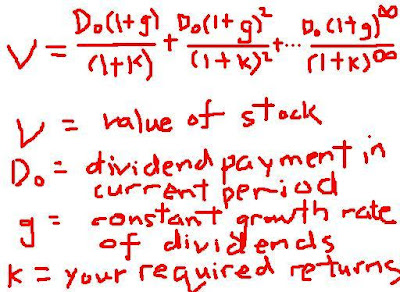 V = D₀(1+g)/(1+k) + D₀(1+g)²/(1+k)² + ... D₀(1+g)^∞/(1+k)^∞
V = value of stock
D₀ = dividend payment in
current period
g = constant growth rate
of dividends
k = your required returns